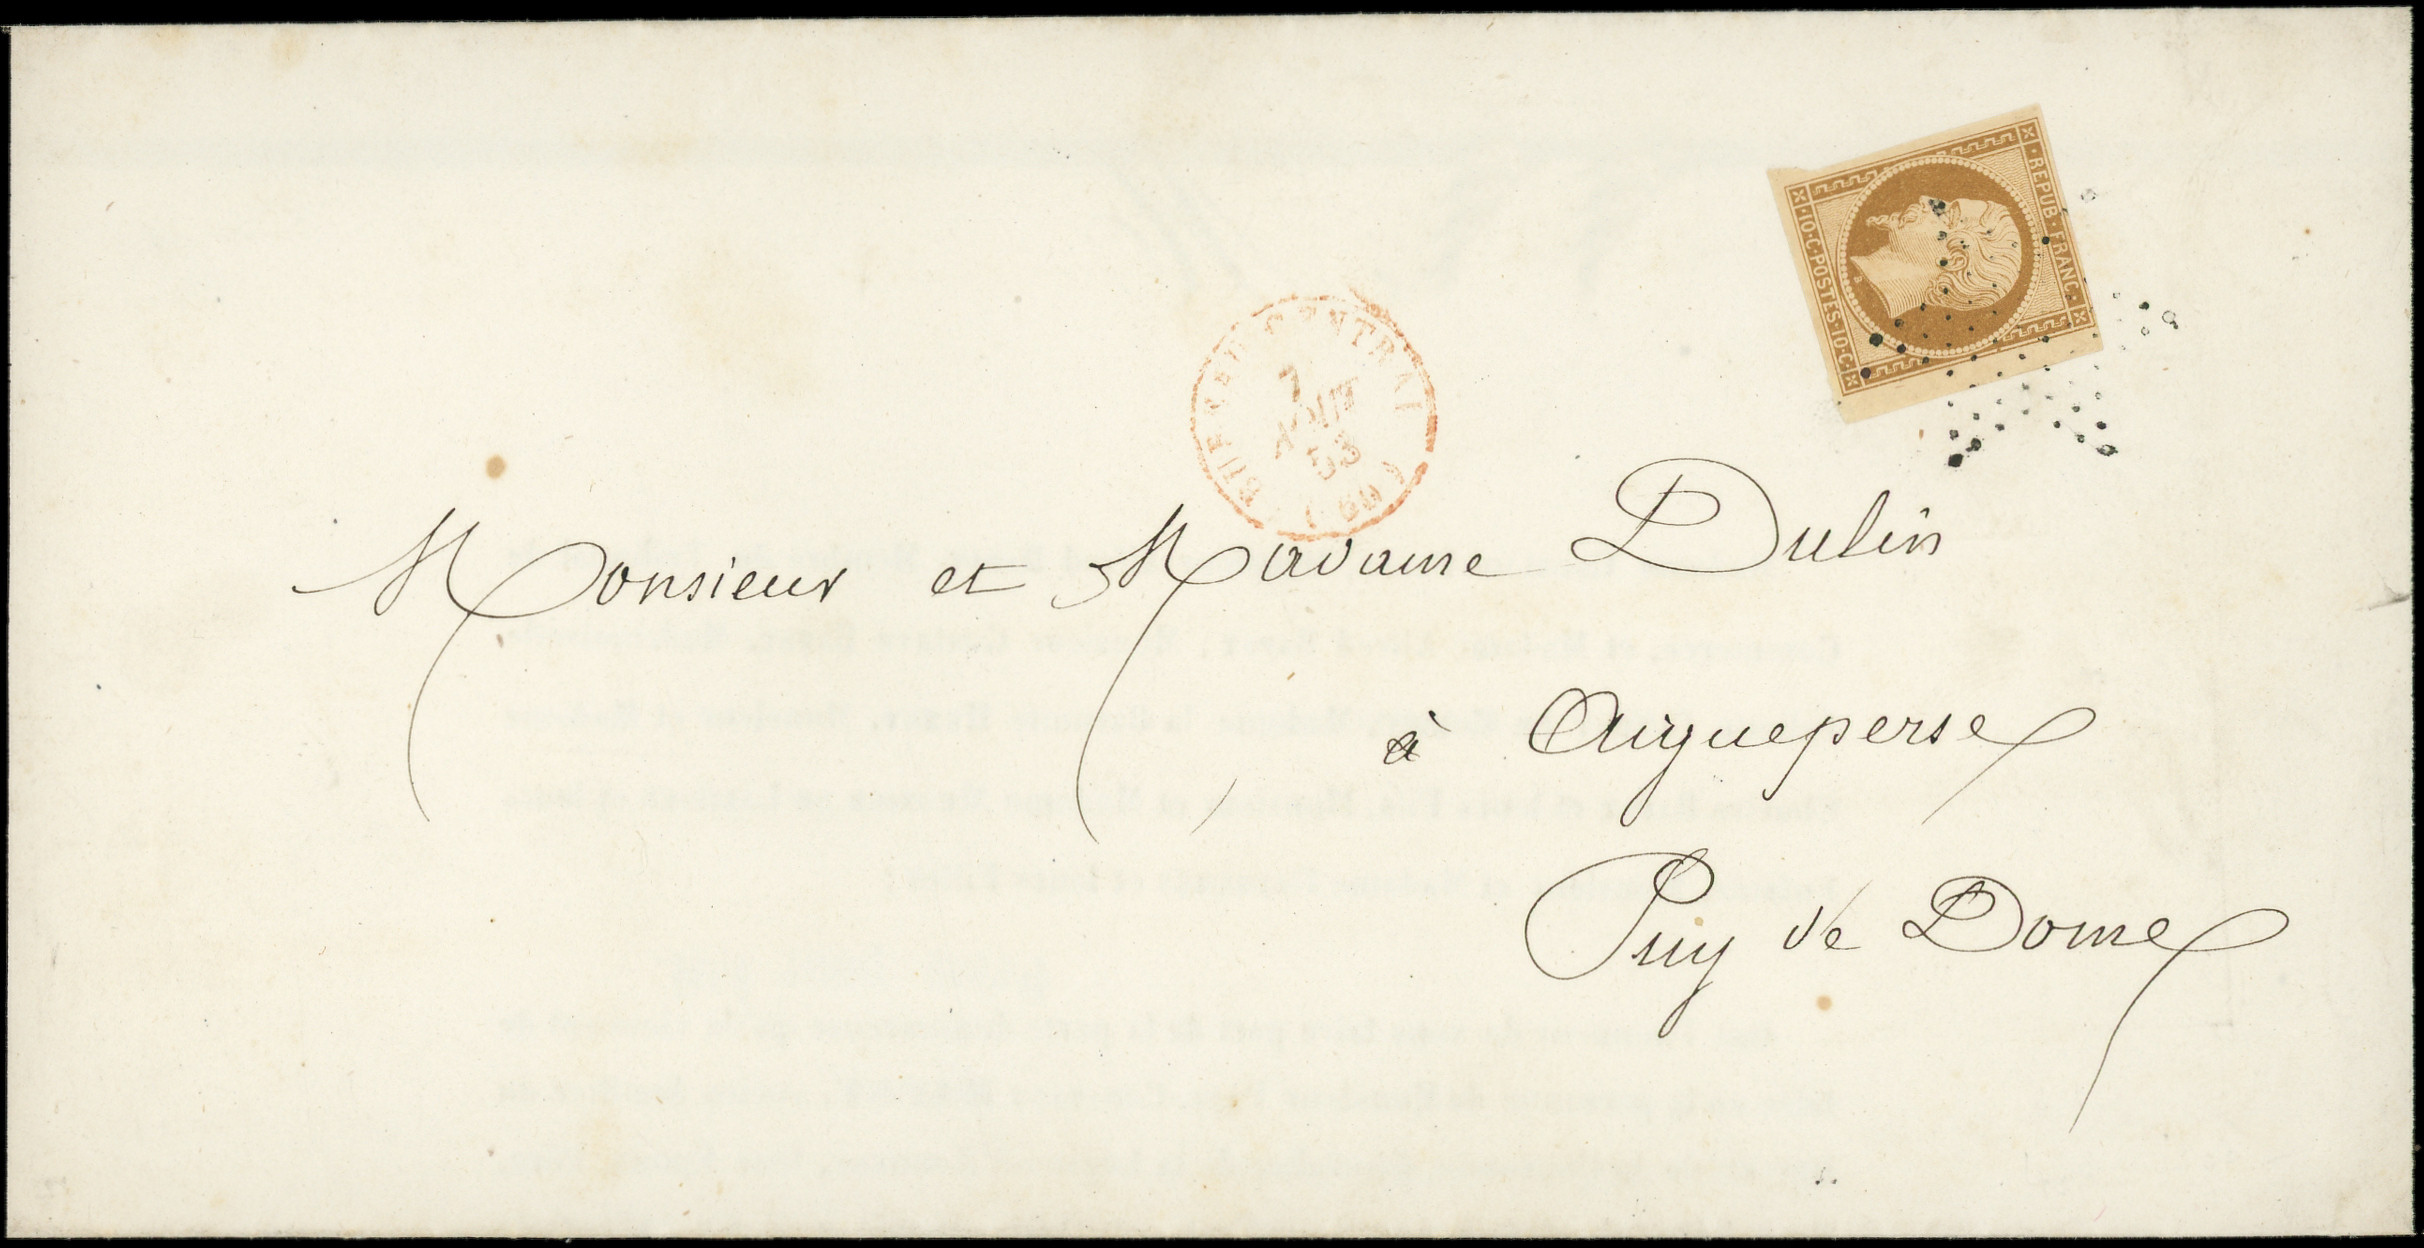 REPUB. FRANC.
10.C.POSTES.10.C.
BUREAU CENTRAL
7
AOUT
53
(60)
Monsieur et Madame Dulin
à Aigueperse
Puy de Dome